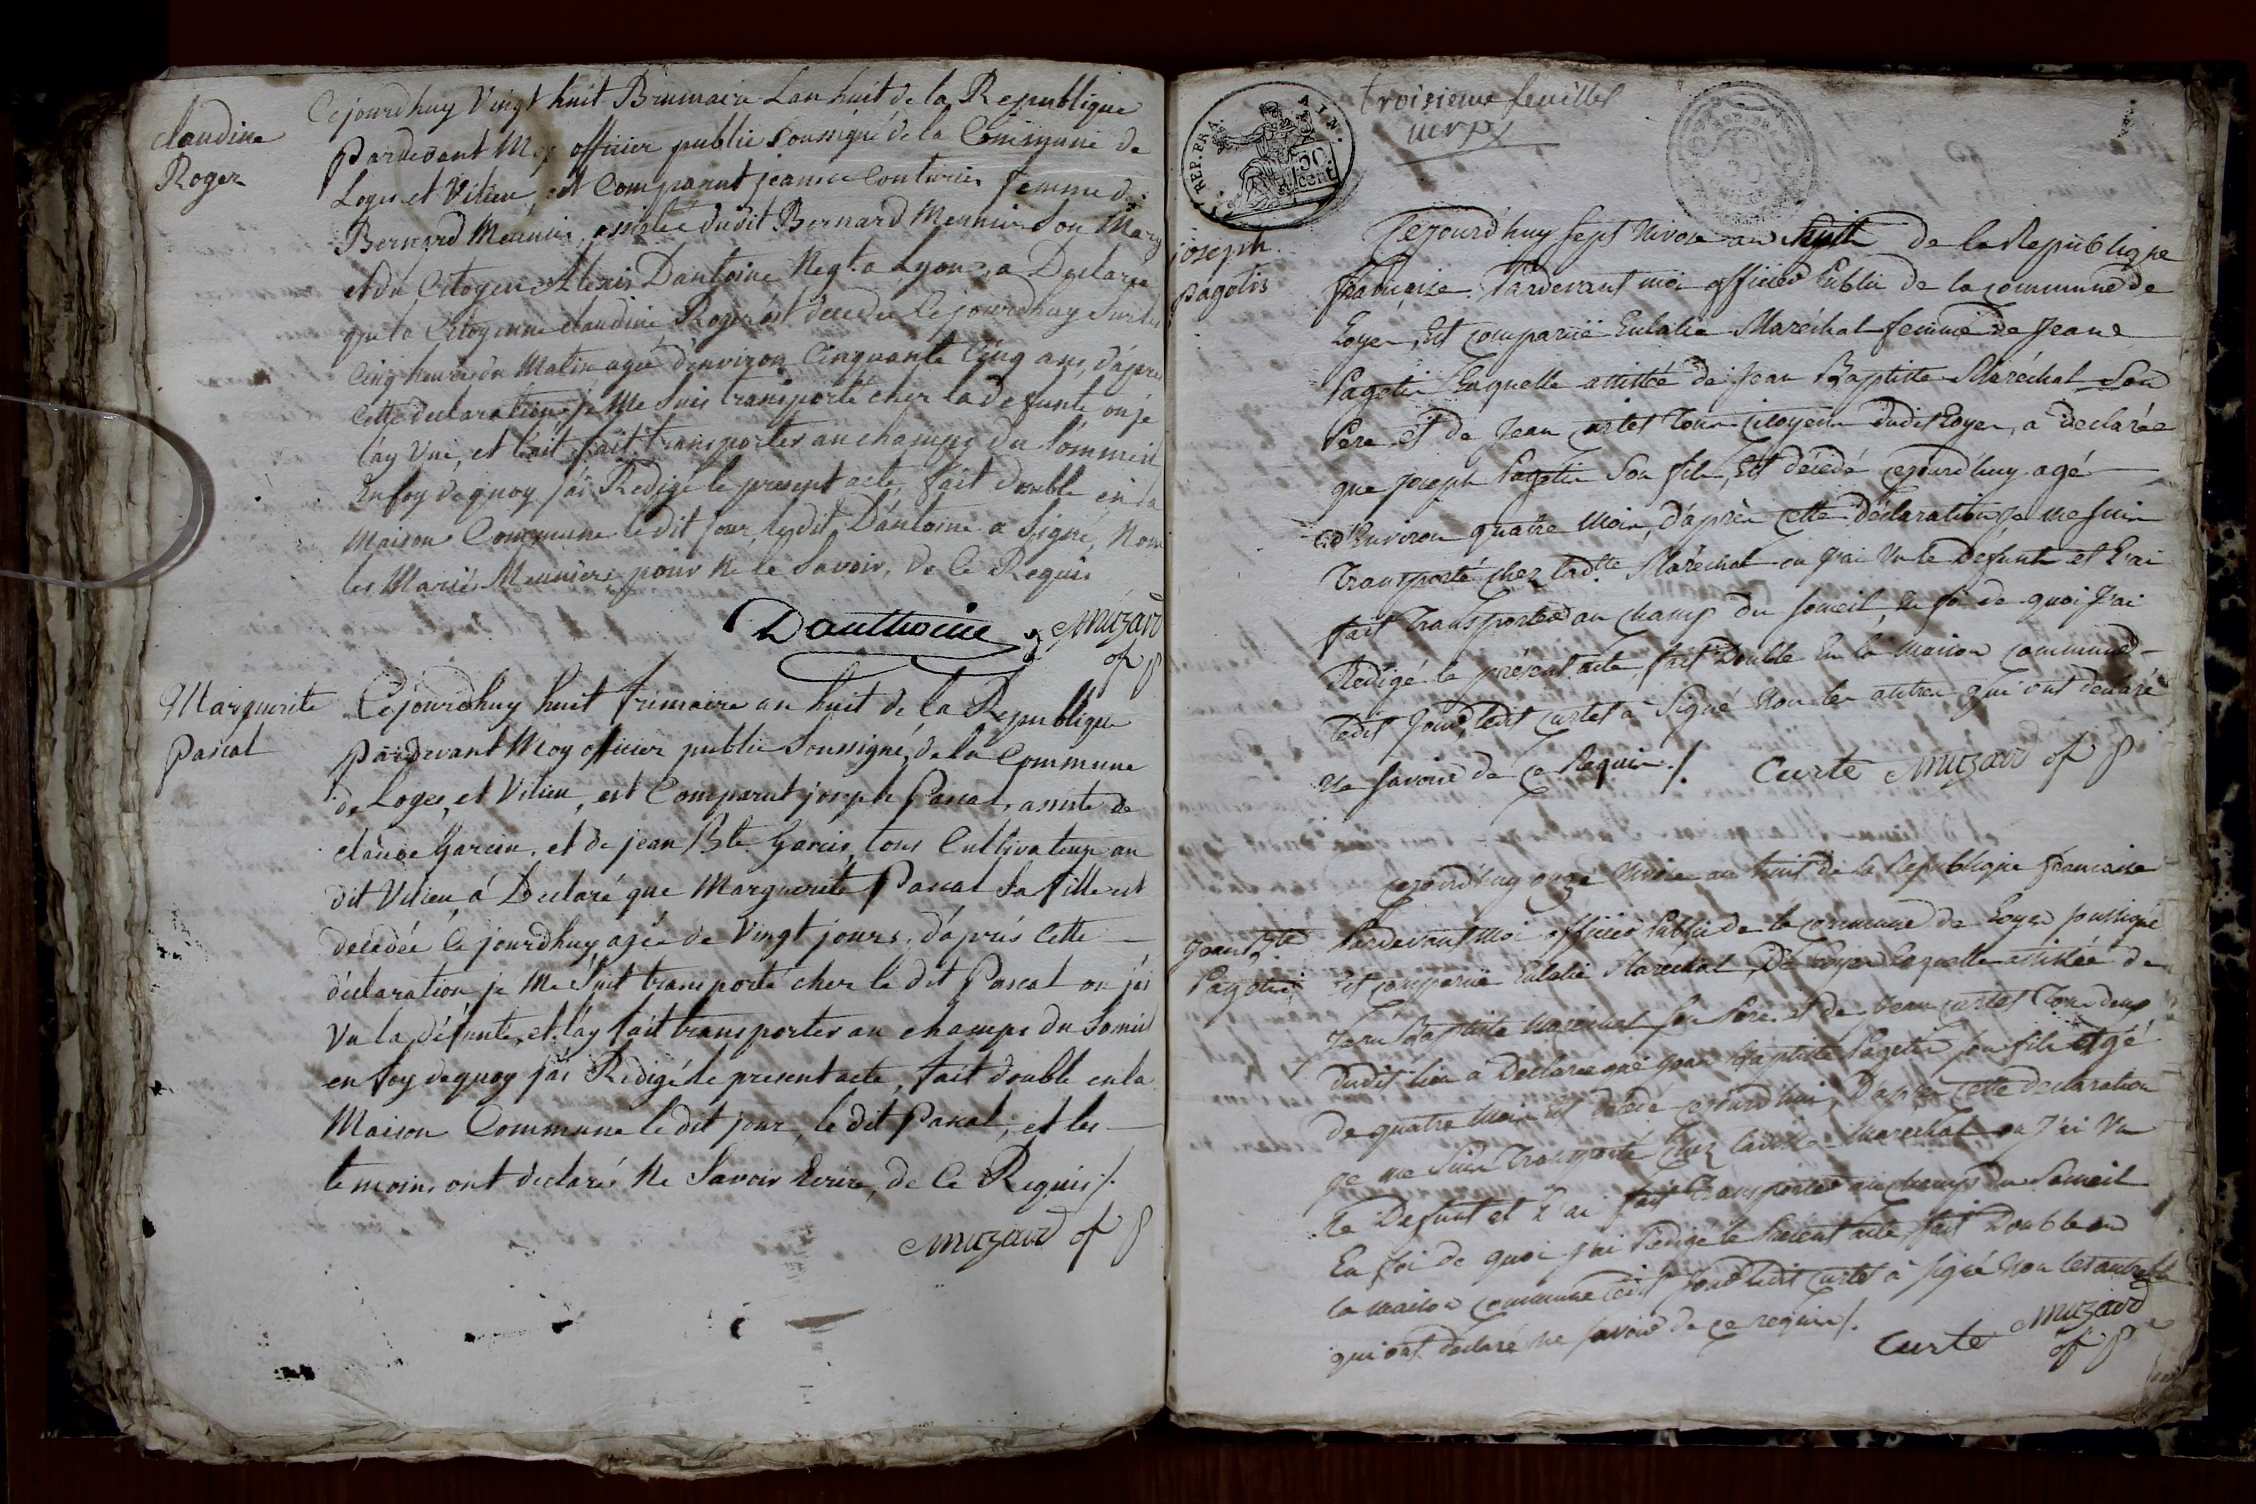 claudine
Roger
Cejourdhuy Vingt huit Brumaire Lan huit de la Republique
Pardevant Moy officier public Soussigné de la Commune de
Loyes et Vilieu, est Comparut jeanne Couturier femme de
Bernard Meunier, assistée dudit Bernard Meunier Son Mary
et du Citoyen Alexis Dantoine Negt. a Lyon, a Declaré
que la Citoyenne claudine Roger est décédée Cejourdhuy Sur les
Cinq heures du Matin agée d'environ Cinquante Cinq ans, d'après
Cette declaration je Me Suis transporté cher la defunte, ou je
l'ay Vue, et l'ait fait transporter au champs du Sommeil
en foy de quoy j'ai Redigé le present acte, fait double en la
Maison Commune le dit jour, le dit Dantoine a Signé, Non
les Mariés Meuniers pour Ne le Savoir, de Ce Requis
Danthoine Muzard
of p
Marguerite
Pascal
Cejourdhuy huit frimaire an huit de la Republique
Pardevant Moy officier public Soussigné, de la Commune
de Loyes, et Vilieu, est Comparut joseph Pascal, assisté de
claude Garcin, et de jean Bte. Garcin, tous Cultivateurs au
dit Vilieu, a Declaré que Marguerite Pascal Sa fille est
decedée Cejourdhuy, agée de Vingt jours, d'après Cette
déclaration je Me Suit transporté cher le dit Pascal ou j'ai
Vu la défunte, et l'ay fait transporter au champs du Someil
en foy de quoy j'ai Redigé le present acte, fait double en la
Maison Commune le dit jour, le dit Pascal, et les
temoins ont declarés Ne Savoir Ecrire, de Ce Requis ./.
Muzard of p
REP. FRA. AIN.
50 cent.
troisieme feuillet
joseph
pagotis
Cejourd'huy Sept Nivose an huit de la Republique
française. Pardevant moi officier Public de la commune de
Loyes, Est comparuë Eulalie Maréchal femme de Jean
Pagotis Laquelle assistée de Jean Baptiste Maréchal Son
Pere et de Jean curtet Tous citoyens dudit Loyes, a déclarée
que joseph Pagotis Son fils, Est décédé cejourd'huy agé
d'Environ quatre Mois, d'après cette Déclaration je me suis
Transporté chez ladtte Maréchal ou j'ai vu le Défunt et L'ai
fait Transporter au champ du Someil, En foi de quoi J'ai
Redigé le présent acte, fait Double En la maison commune
ledit jour, ledit curtet à Signé Non les autres qui ont declaré
Ne Savoir de ce Requis ./. Curté Muzard of p
Jean Bte
Pagotis
cejourd'huy onze Nivose an huit de la Republique francaise
Pardevant moi officier Public de la commune de Loyes soussigné
Est comparuë Eulalie Maréchal, De Loyes Laquelle assistée de
Jean Baptiste Maréchal son Pere et de Jean curtet Tous deux
dudit lieu à Declaré que Jean Baptiste Pagotis son fils agé
de quatre Mois Est décédé cejourd'hui, D'après cette declaration
je me suis Transporté chez laditte Marechal ou J'ai Vu
Le Defunt et L'ai fait Transporter au champ du Someil
En foi de quoi j'ai Redigé le Présent acte fait Double en
la maison commune ledit jour ledit curtet à signé Non les autres
qui ont declaré Ne Savoir de ce requis ./.
Curté Muzard
of p